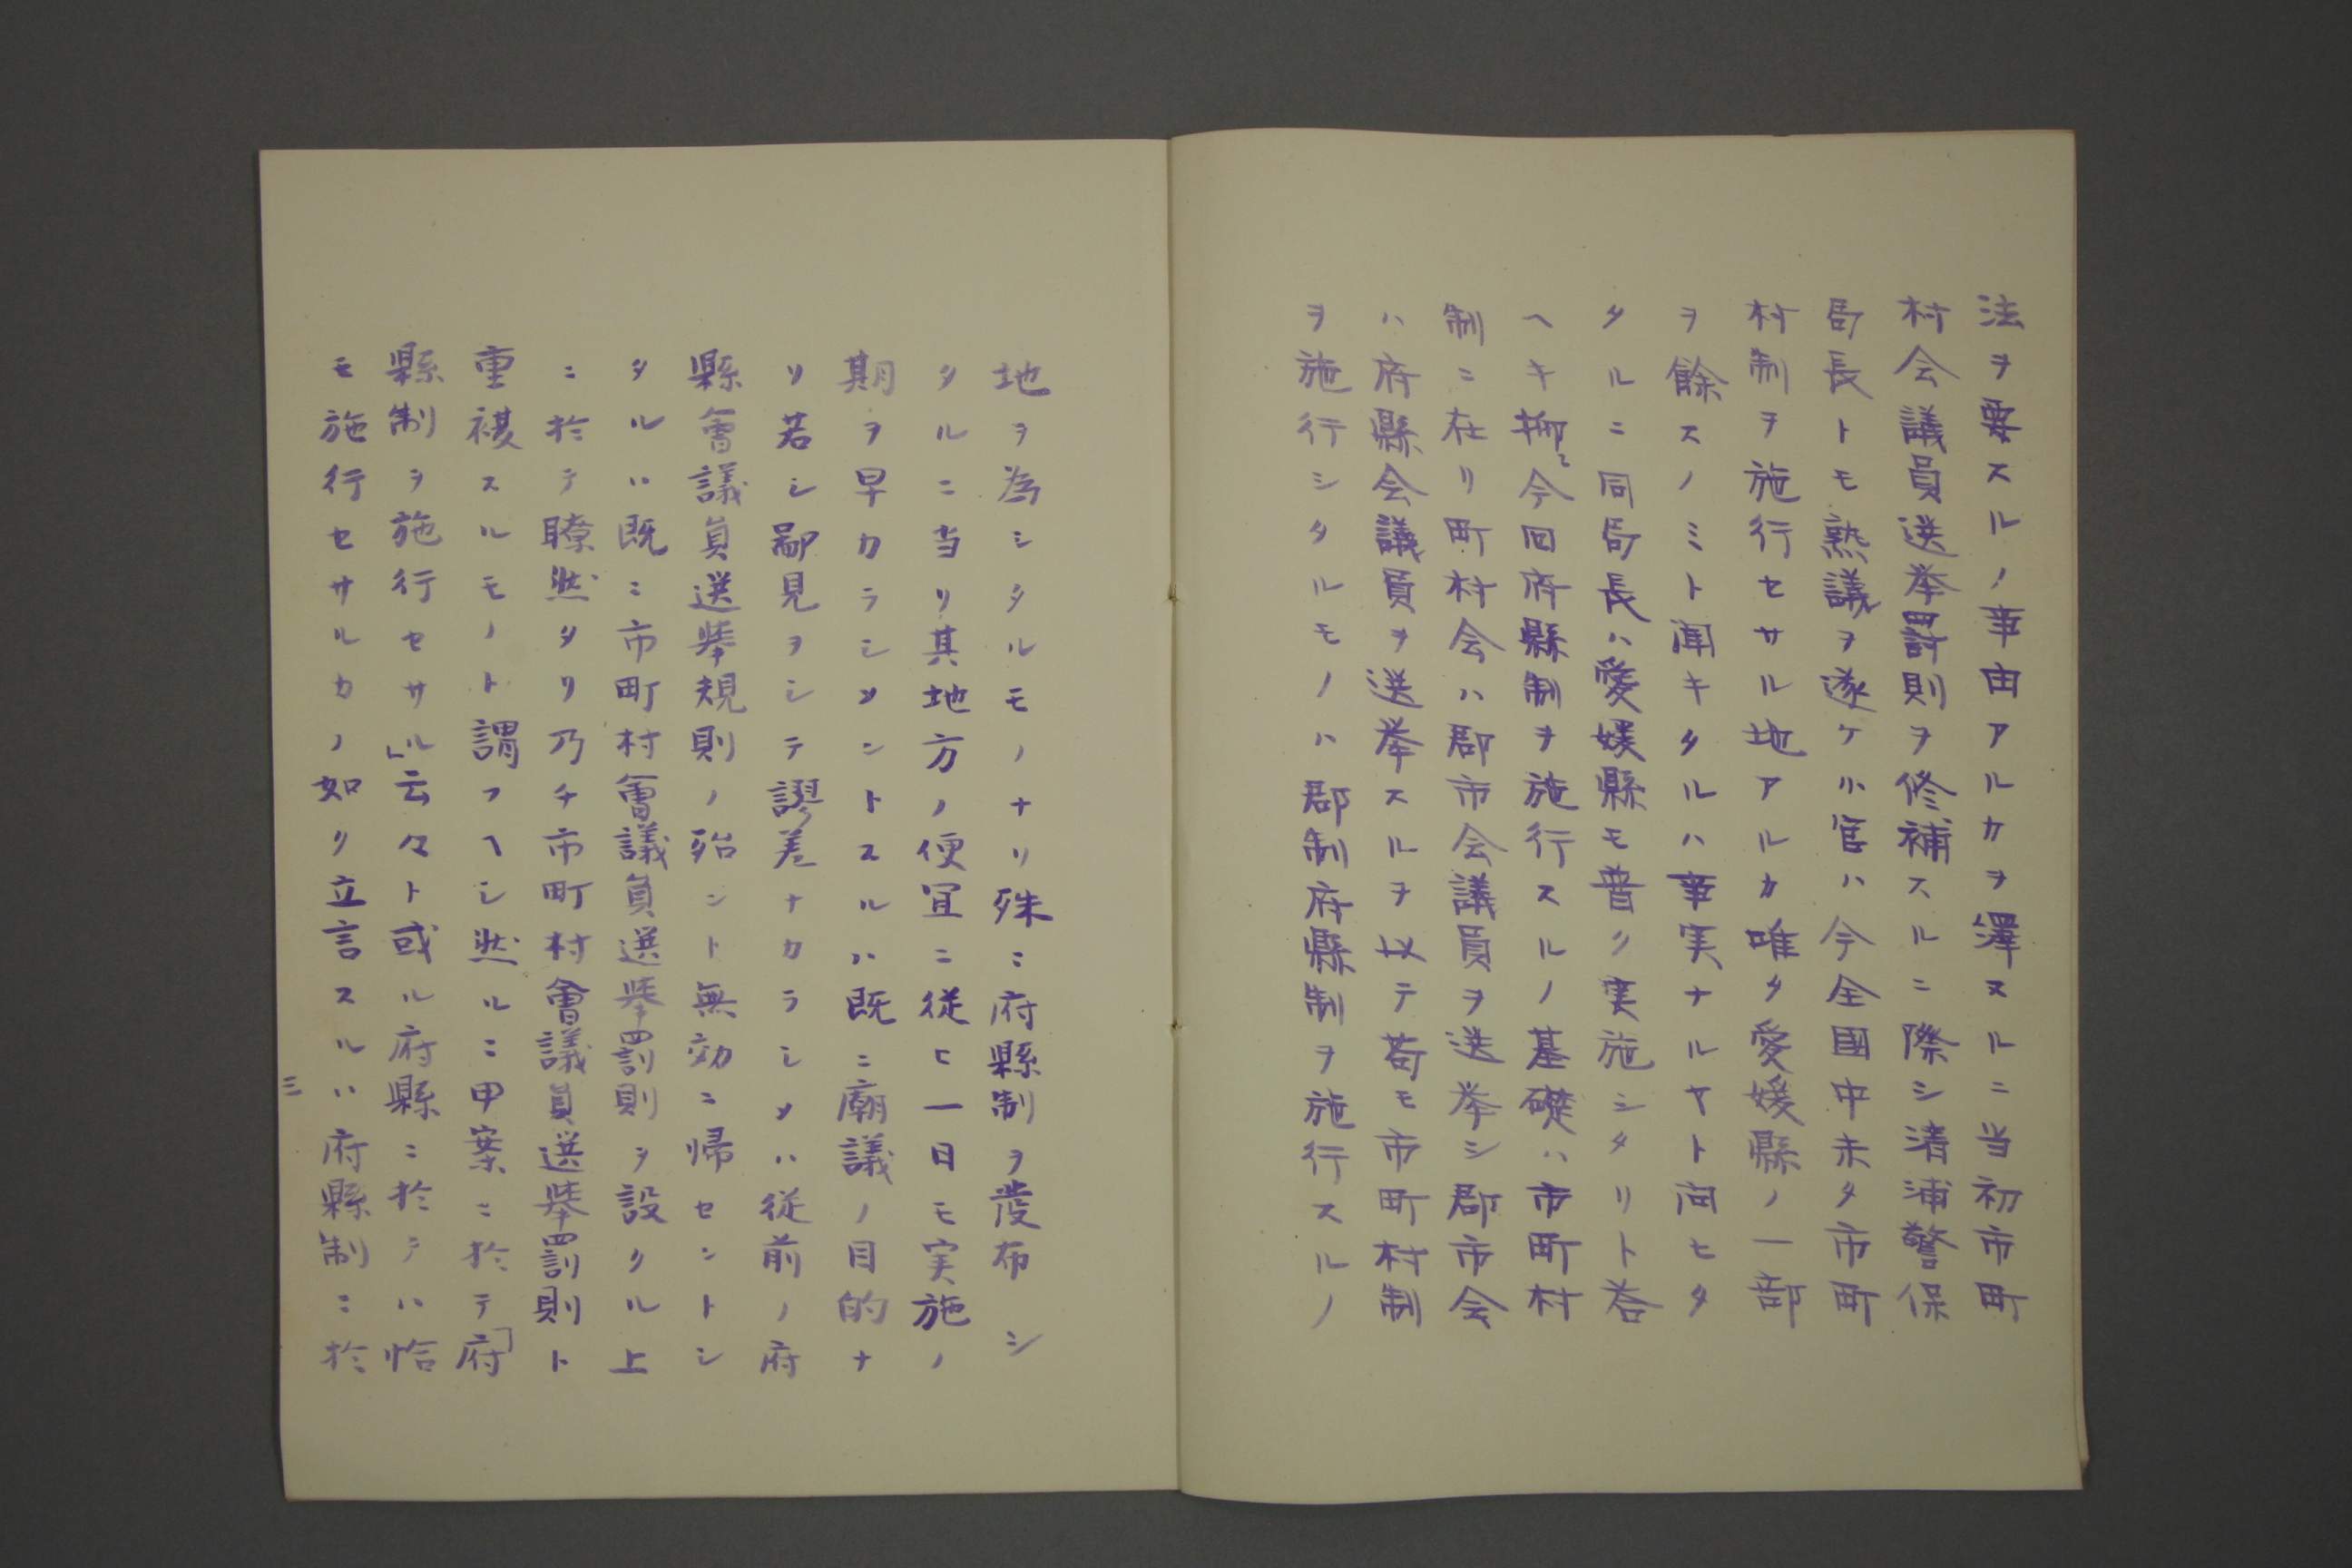 法ヲ要スルノ事由アルカヲ澤ヌルニ当初市町
村会議員選挙罰則ヲ修補スルニ際シ清浦警保
局長トモ熟議ヲ遂ケ小官ハ今全國中未タ市町
村制ヲ施行セサル地アルカ唯タ愛媛縣ノ一部
ヲ餘スノミト聞キタルハ事実ナルヤト问ヒタ
タルニ同局長ハ愛媛縣モ普ク実施シタリト答
ヘキ抑〻今回府縣制ヲ施行スルノ基礎ハ市町村
制ニ在リ町村会ハ郡市会議員ヲ选挙シ郡市会
ハ府縣会議員ヲ選挙スルヲ以テ苟モ市町村制
ヲ施行シタルモノハ郡制府縣制ヲ施行スルノ
地ヲ為シタルモノナリ殊ニ府縣制ヲ發布シ
タルニ当リ其地方ノ便宜ニ従ヒ一日モ実施ノ
期ヲ早カラシメントスルハ既ニ廟議ノ目的ナ
リ若シ鄙見ヲシテ謬差ナカラシメハ従前ノ府
縣會議員選挙規則ノ殆ント無効ニ帰セントシ
タルハ既ニ市町村會議員選挙罰則ヲ設クル上
ニ於テ瞭然タリ乃チ市町村會議員選挙罰則ト
重複スルモノト謂フヘシ然ルニ甲案ニ於テ「府
縣制ヲ施行セサル」云々ト或ル府縣ニ於テハ恰
モ施行セサルカノ如リ立言スルハ府縣制ニ於
三